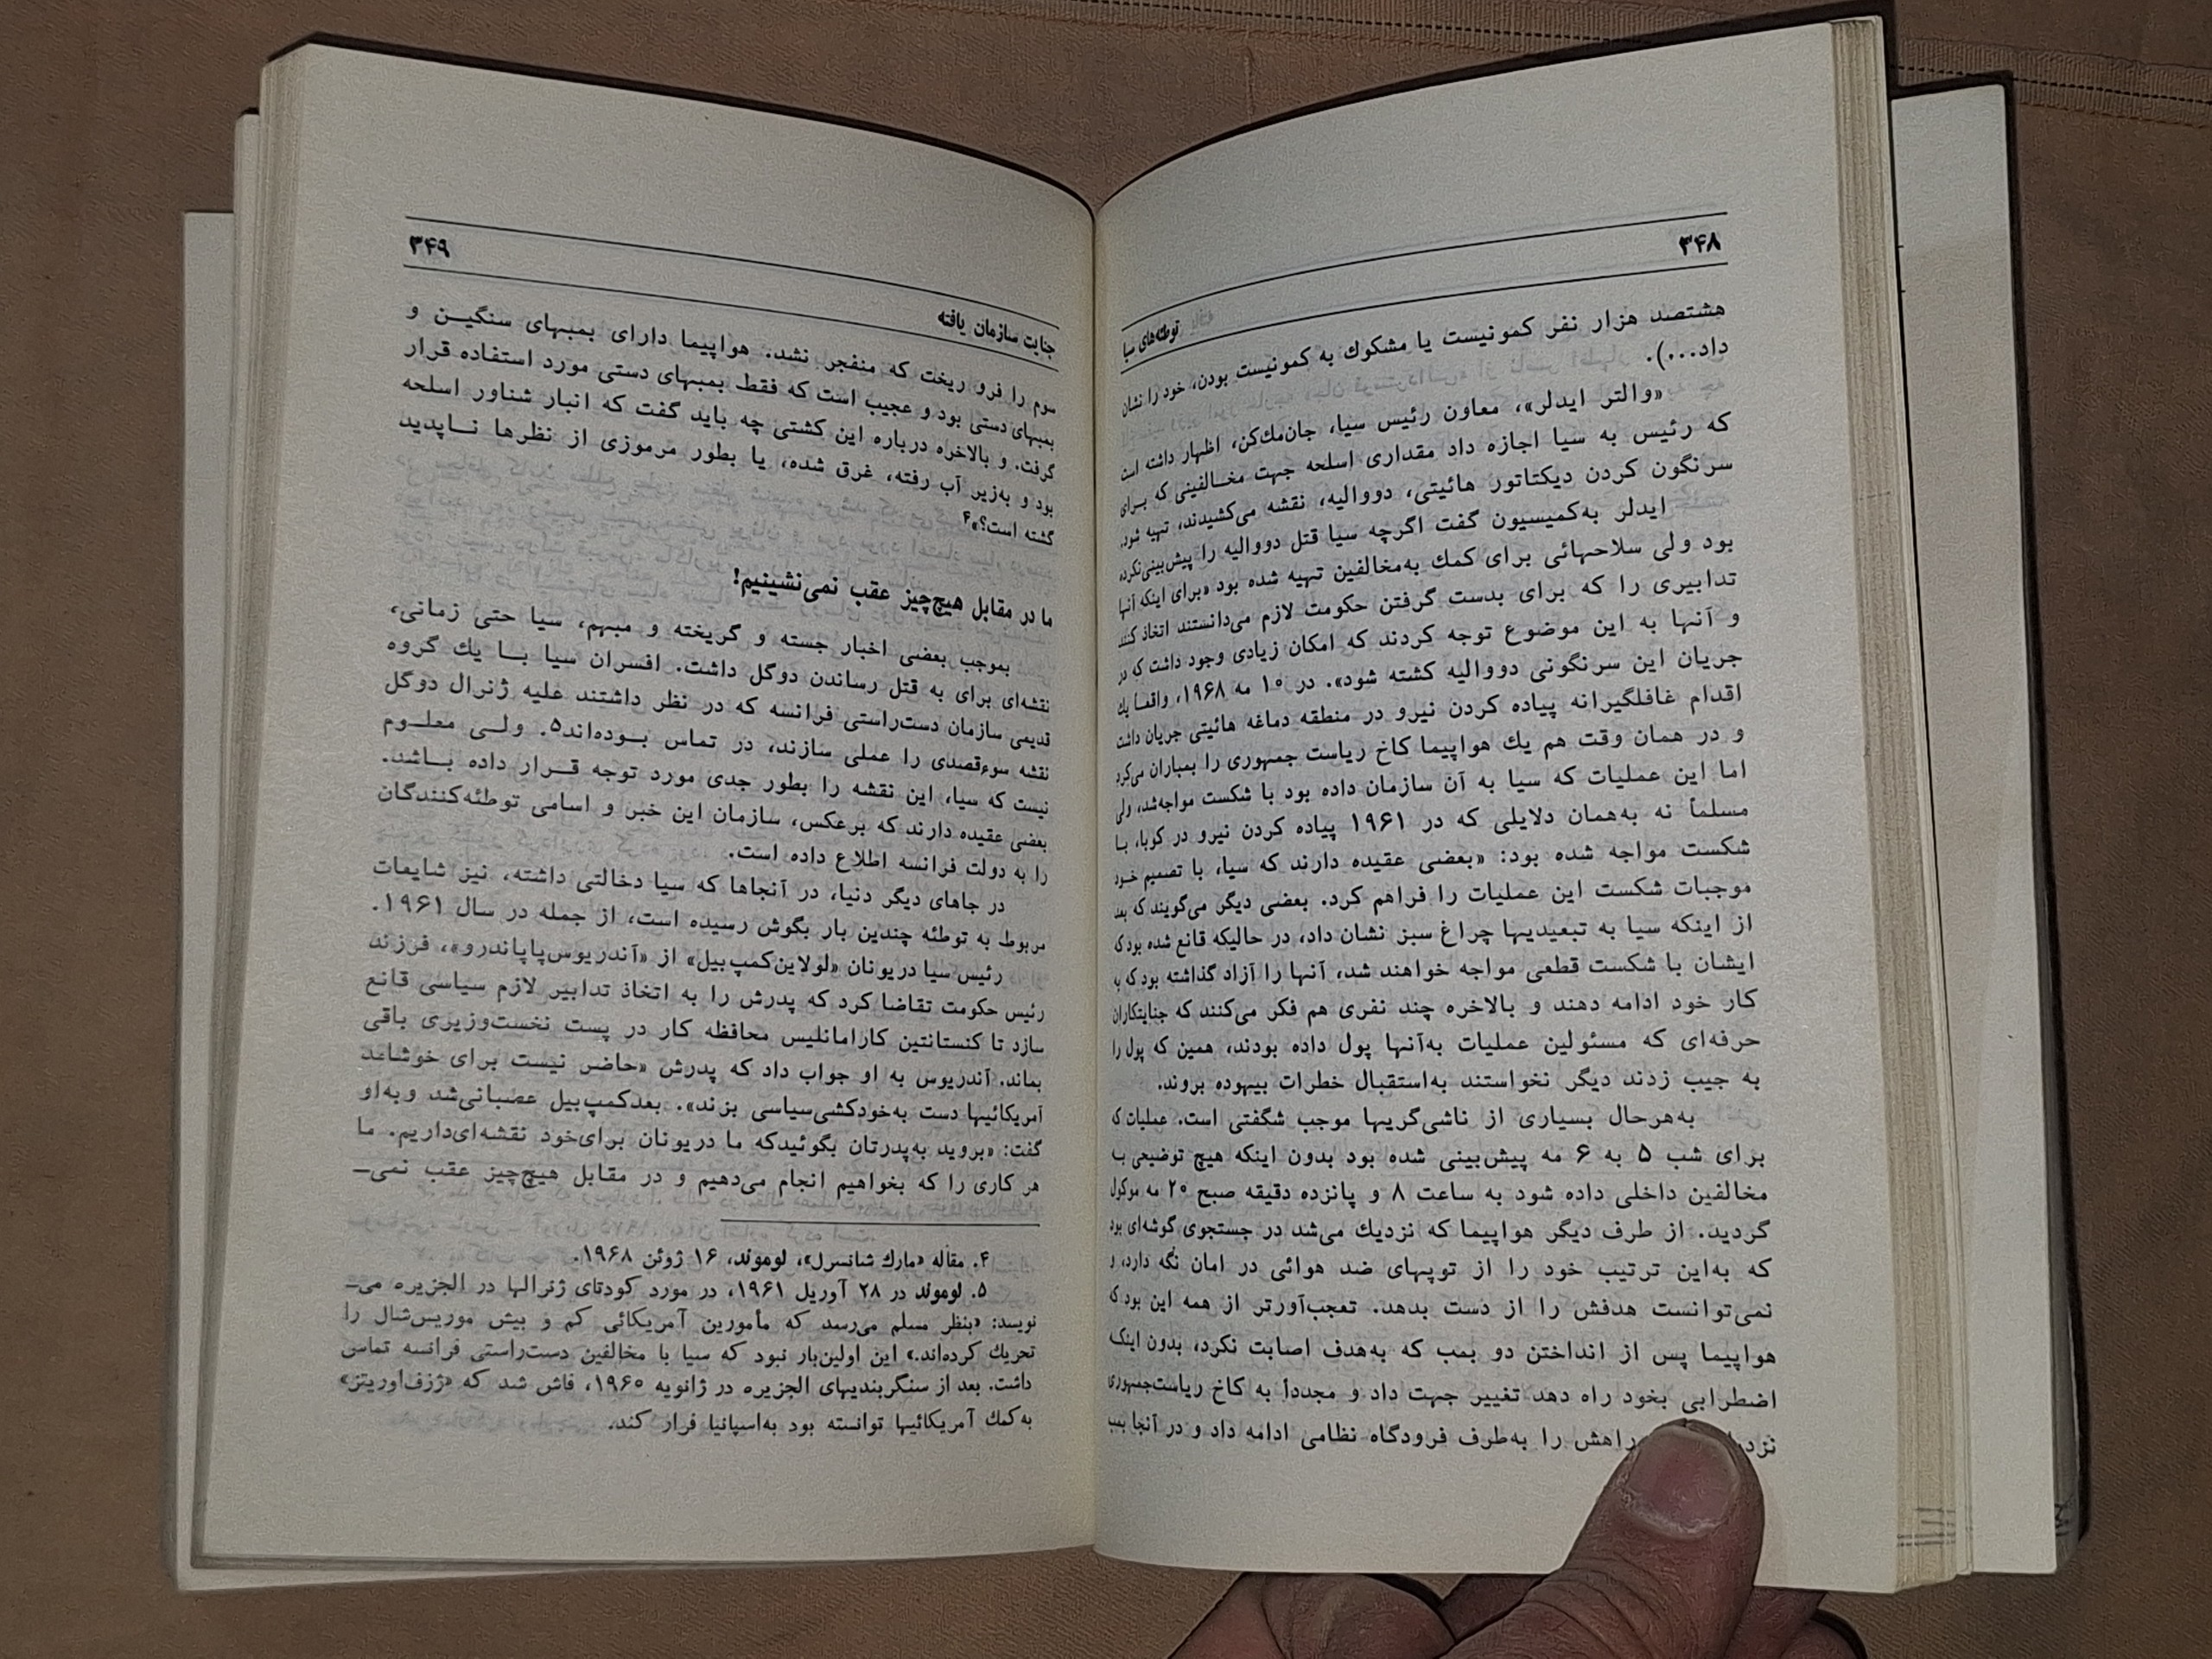 ۳۴۸
توطئه‌های سیا
هشتصد هزار نفر کمونیست یا مشکوك به کمونیست بودن، خود را نشان
داد...).
«والتر ایدلر»، معاون رئیس سیا، جان‌مك‌کن، اظهار داشته است
که رئیس به سیا اجازه داد مقداری اسلحه جهت مخالفینی که برای
سرنگون کردن دیکتاتور هائیتی، دووالیه، نقشه می‌کشیدند، تهیه شود.
ایدلر به‌کمیسیون گفت اگرچه سیا قتل دووالیه را پیش‌بینی‌نکرده
بود ولی سلاحهائی برای کمك به‌مخالفین تهیه شده بود «برای اینکه آنها
تدابیری را که برای بدست گرفتن حکومت لازم می‌دانستند اتخاذ کنند
و آنها به این موضوع توجه کردند که امکان زیادی وجود داشت که در
جریان این سرنگونی دووالیه کشته شود». در ۱۰ مه ۱۹۶۸، واقعاً یك
اقدام غافلگیرانه پیاده کردن نیرو در منطقه دماغه هائیتی جریان داشت
و در همان وقت هم یك هواپیما کاخ ریاست جمهوری را بمباران می‌کرد
اما این عملیات که سیا به آن سازمان داده بود با شکست مواجه‌شد، ولی
مسلماً نه به‌همان دلایلی که در ۱۹۶۱ پیاده کردن نیرو در کوبا، با
شکست مواجه شده بود: «بعضی عقیده دارند که سیا، با تصمیم خود
موجبات شکست این عملیات را فراهم کرد. بعضی دیگر می‌گویند که بعد
از اینکه سیا به تبعیدیها چراغ سبز نشان داد، در حالیکه قانع شده بود که
ایشان با شکست قطعی مواجه خواهند شد، آنها را آزاد گذاشته بود که به
کار خود ادامه دهند و بالاخره چند نفری هم فکر می‌کنند که جنایتکاران
حرفه‌ای که مسئولین عملیات به‌آنها پول داده بودند، همین که پول را
به جیب زدند دیگر نخواستند به‌استقبال خطرات بیهوده بروند.
به‌هرحال بسیاری از ناشی‌گریها موجب شگفتی است. عملیات که
برای شب ۵ به ۶ مه پیش‌بینی شده بود بدون اینکه هیچ توضیحی به
مخالفین داخلی داده شود به ساعت ۸ و پانزده دقیقه صبح ۲۰ مه موکول
گردید. از طرف دیگر هواپیما که نزدیك می‌شد در جستجوی گوشه‌ای بود
که به‌این ترتیب خود را از توپهای ضد هوائی در امان نگه دارد، و
نمی‌توانست هدفش را از دست بدهد. تعجب‌آورتر از همه این بود که
هواپیما پس از انداختن دو بمب که به‌هدف اصابت نکرد، بدون اینکه
اضطرابی بخود راه دهد تغییر جهت داد و مجدداً به کاخ ریاست‌جمهوری
راهش را به‌طرف فرودگاه نظامی ادامه داد و در آنجا بمب
۳۴۹
جنایت سازمان یافته
سوم را فرو ریخت که منفجر نشد. هواپیما دارای بمبهای سنگین و
بمبهای دستی بود و عجیب است که فقط بمبهای دستی مورد استفاده قرار
گرفت. و بالاخره درباره این کشتی چه باید گفت که انبار شناور اسلحه
بود و به‌زیر آب رفته، غرق شده، یا بطور مرموزی از نظرها ناپدید
گشته است؟»۴
ما در مقابل هیچ‌چیز عقب نمی‌نشینیم!
بموجب بعضی اخبار جسته و گریخته و مبهم، سیا حتی زمانی،
نقشه‌ای برای به قتل رساندن دوگل داشت. افسران سیا با یك گروه
قدیمی سازمان دست‌راستی فرانسه که در نظر داشتند علیه ژنرال دوگل
نقشه سوءقصدی را عملی سازند، در تماس بوده‌اند۵. ولی معلوم
نیست که سیا، این نقشه را بطور جدی مورد توجه قرار داده باشد.
بعضی عقیده دارند که برعکس، سازمان این خبر و اسامی توطئه‌کنندگان
را به دولت فرانسه اطلاع داده است.
در جاهای دیگر دنیا، در آنجاها که سیا دخالتی داشته، نیز شایعات
مربوط به توطئه چندین بار بگوش رسیده است، از جمله در سال ۱۹۶۱.
رئیس سیا دریونان «لولاین‌کمپ‌بیل» از «آندریوس‌پاپاندرو»، فرزند
رئیس حکومت تقاضا کرد که پدرش را به اتخاذ تدابیر لازم سیاسی قانع
سازد تا کنستانتین کارامانلیس محافظه کار در پست نخست‌وزیری باقی
بماند. آندریوس به او جواب داد که پدرش «حاضر نیست برای خوشامد
آمریکائیها دست به‌خودکشی‌سیاسی بزند». بعدکمپ‌بیل عصبانی‌شد و به‌او
گفت: «بروید به‌پدرتان بگوئیدکه ما دریونان برای‌خود نقشه‌ای‌داریم. ما
هر کاری را که بخواهیم انجام می‌دهیم و در مقابل هیچ‌چیز عقب نمی‌ـ
۴. مقاله «مارك شانسرل»، لوموند، ۱۶ ژوئن ۱۹۶۸.
۵. لوموند در ۲۸ آوریل ۱۹۶۱، در مورد کودتای ژنرالها در الجزیره می‌ـ
نویسد: «بنظر مسلم می‌رسد که مأمورین آمریکائی کم و بیش موریس‌شال را
تحریك کرده‌اند.» این اولین‌بار نبود که سیا با مخالفین دست‌راستی فرانسه تماس
داشت. بعد از سنگربندیهای الجزیره در ژانویه ۱۹۶۰، فاش شد که «ژزف‌اوریتز»
به‌کمك آمریکائیها توانسته بود به‌اسپانیا فرار کند.